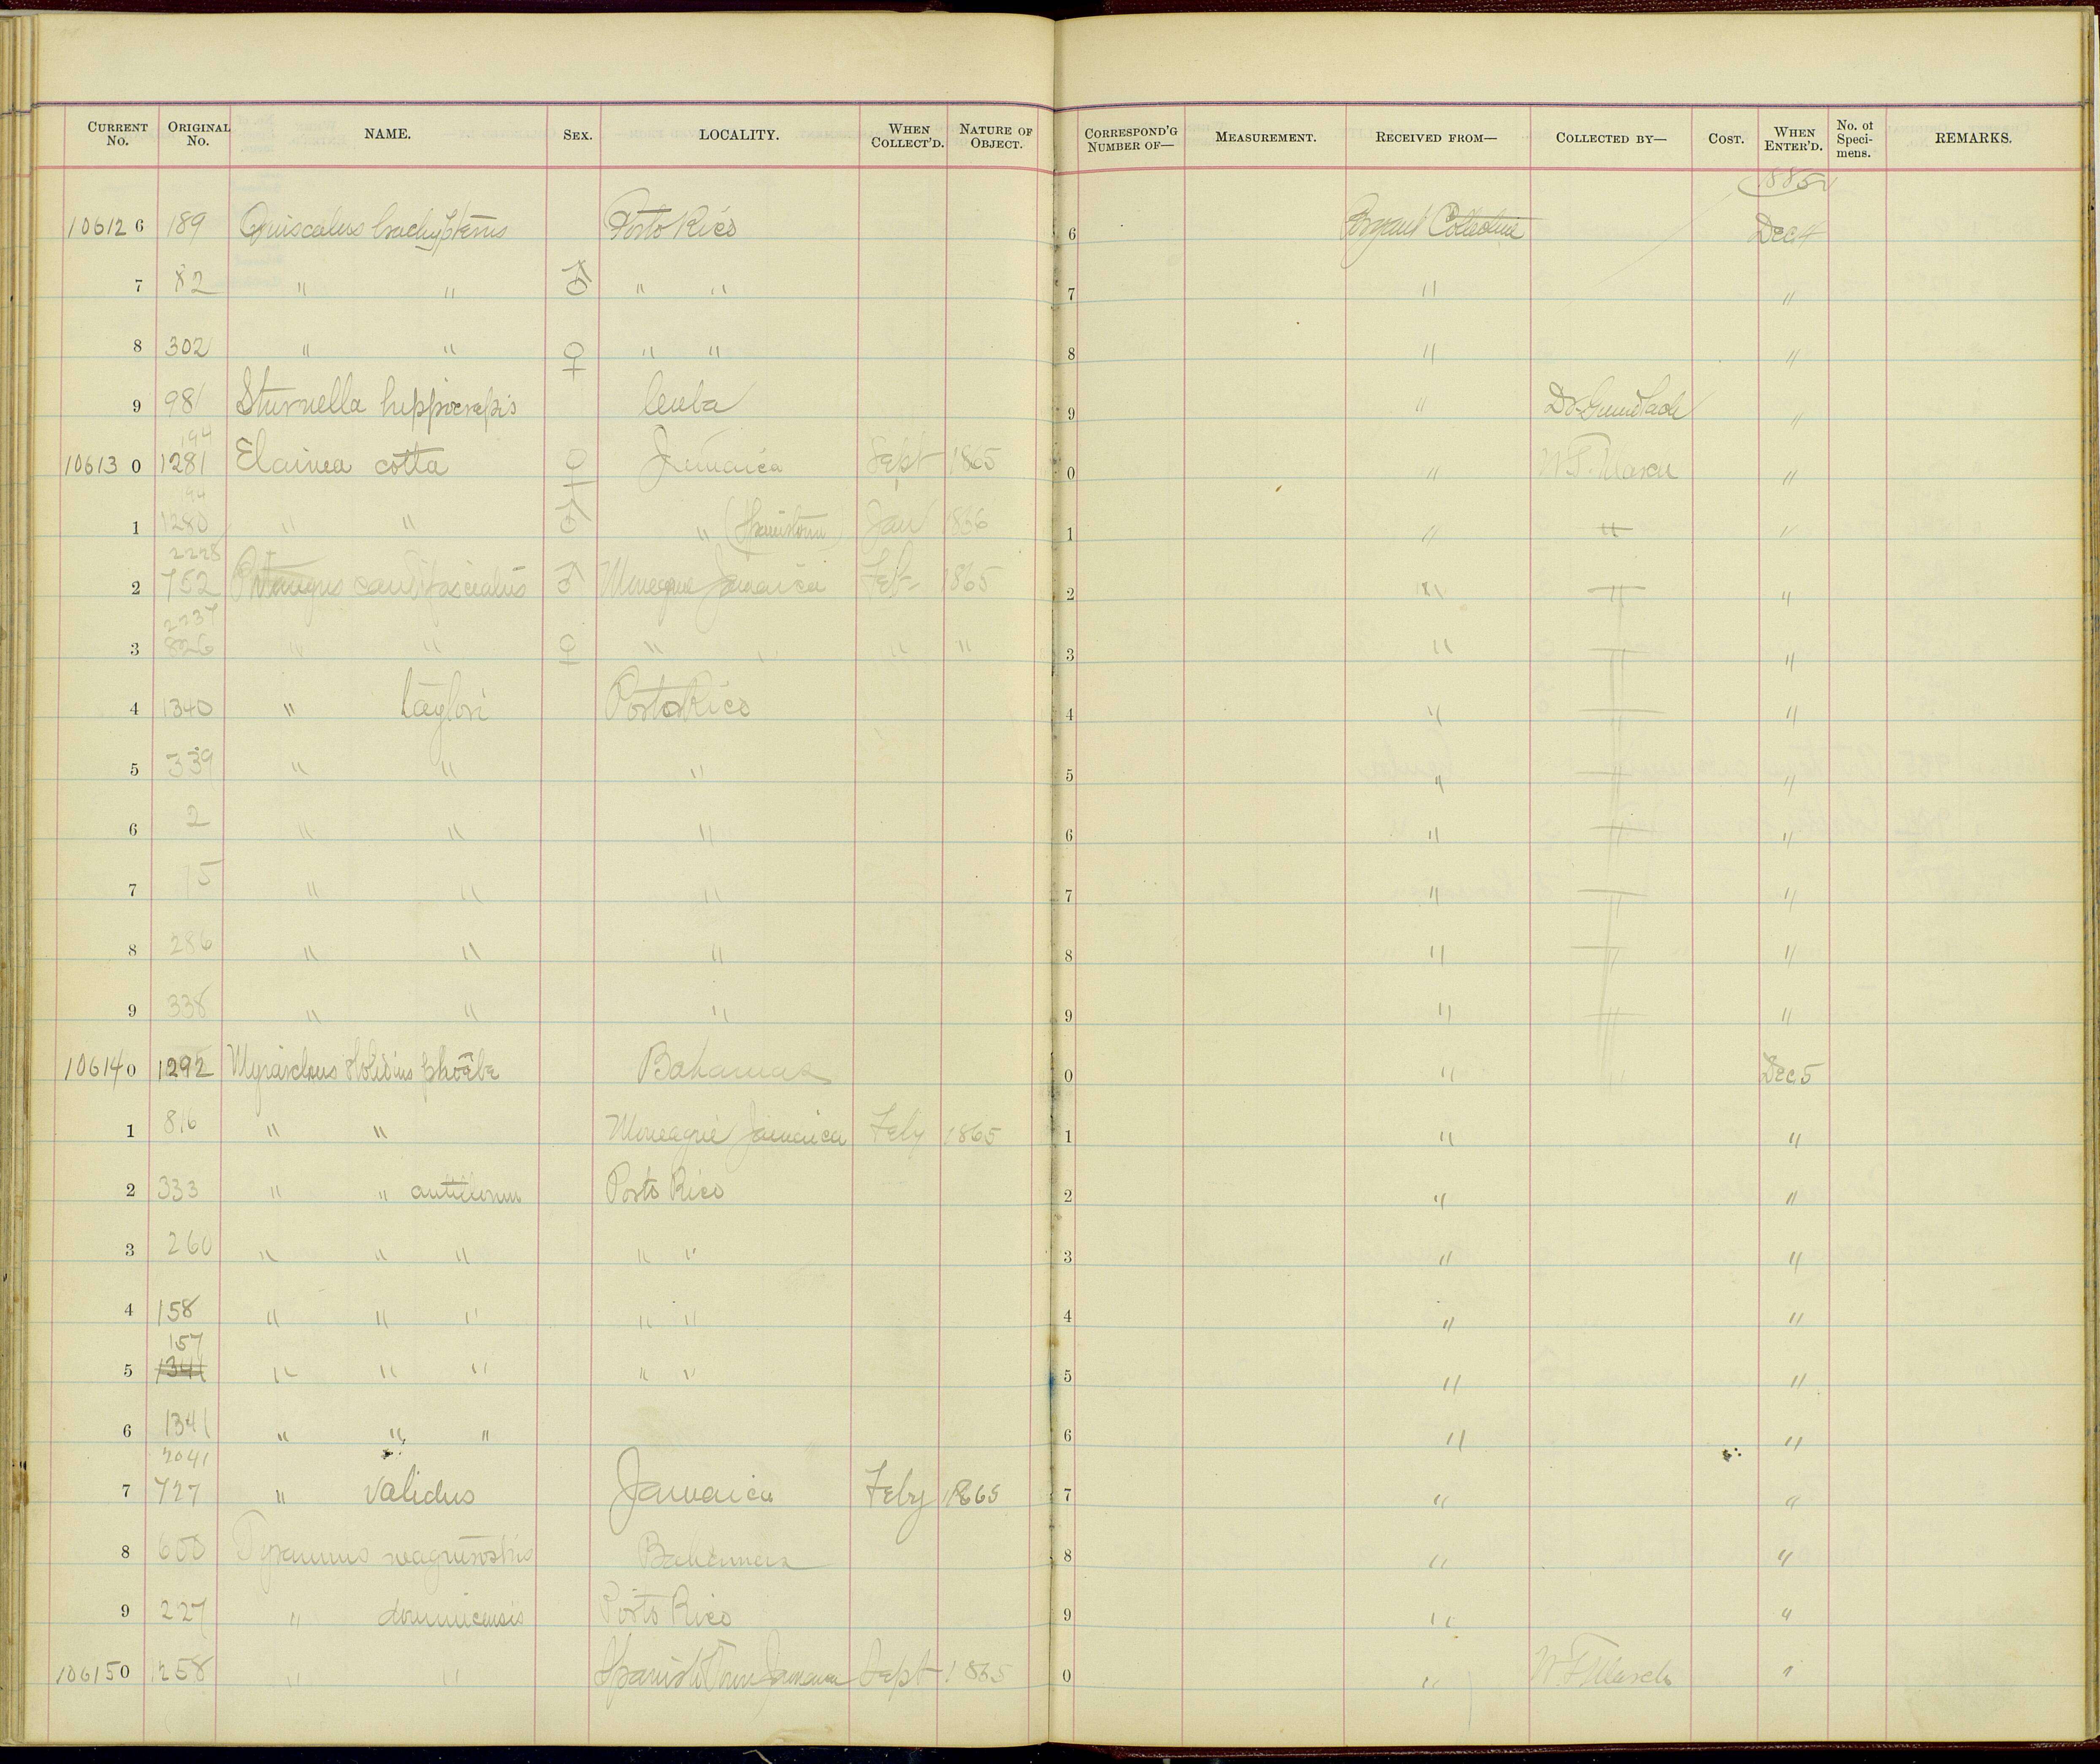 CURRENT No. ORIGINAL No. NAME. SEX. LOCALITY. WHEN COLLECT'D. NATURE OF OBJECT. CORRESPOND'G NUMBER OF— MEASUREMENT. RECEIVED FROM— COLLECTED BY— COST. WHEN ENTER'D. No. of Specimens. REMARKS.
1885
10612 6 189 Quiscalus brachypterus Porto Rico 6 Bryant Collection Dec 4
7 82 " " ♂ " " 7 " "
8 302 " " ♀ " " 8 " "
9 981 Sturnella hippocrepis Cuba 9 " Dr. Gundlach "
194
10613 0 1281 Elainea cotta ♀ Jamaica Sept 1865 0 " "
194
1 1280 " " ♂ " (Spanishtown) Jan 1866 1 " " "
2228
2 752 Pitangus caudifasciatus ♂ Moneague Jamaica Feb- 1865 2 " " "
2237
3 826 " " ♀ " " " " 3 " " "
4 1340 " taylori Porto Rico 4 " " "
5 339 " " " 5 " " "
6 2 " " " 6 " " "
7 15 " " " 7 " " "
8 286 " " " 8 " " "
9 338 " " " 9 " " "
10614 0 1292 Myiarchus stolidus phoebe Bahamas 0 " " Dec 5
1 816 " " Moneague Jamaica Feby 1865 1 " "
2 333 " " antillarum Porto Rico 2 " "
3 260 " " " " " 3 " "
4 158 " " " " " 4 " "
157
5 1341 " " " " " 5 " "
6 1341 " " " 6 " "
2041
7 727 " validus Jamaica Feby 1865 7 " "
8 600 Tyrannus magnirostris Bahamas 8 " "
9 227 " dominicensis Porto Rico 9 " "
10615 0 1258 " " Spanish Town Jamaica Sept 1865 0 " W. T. March "